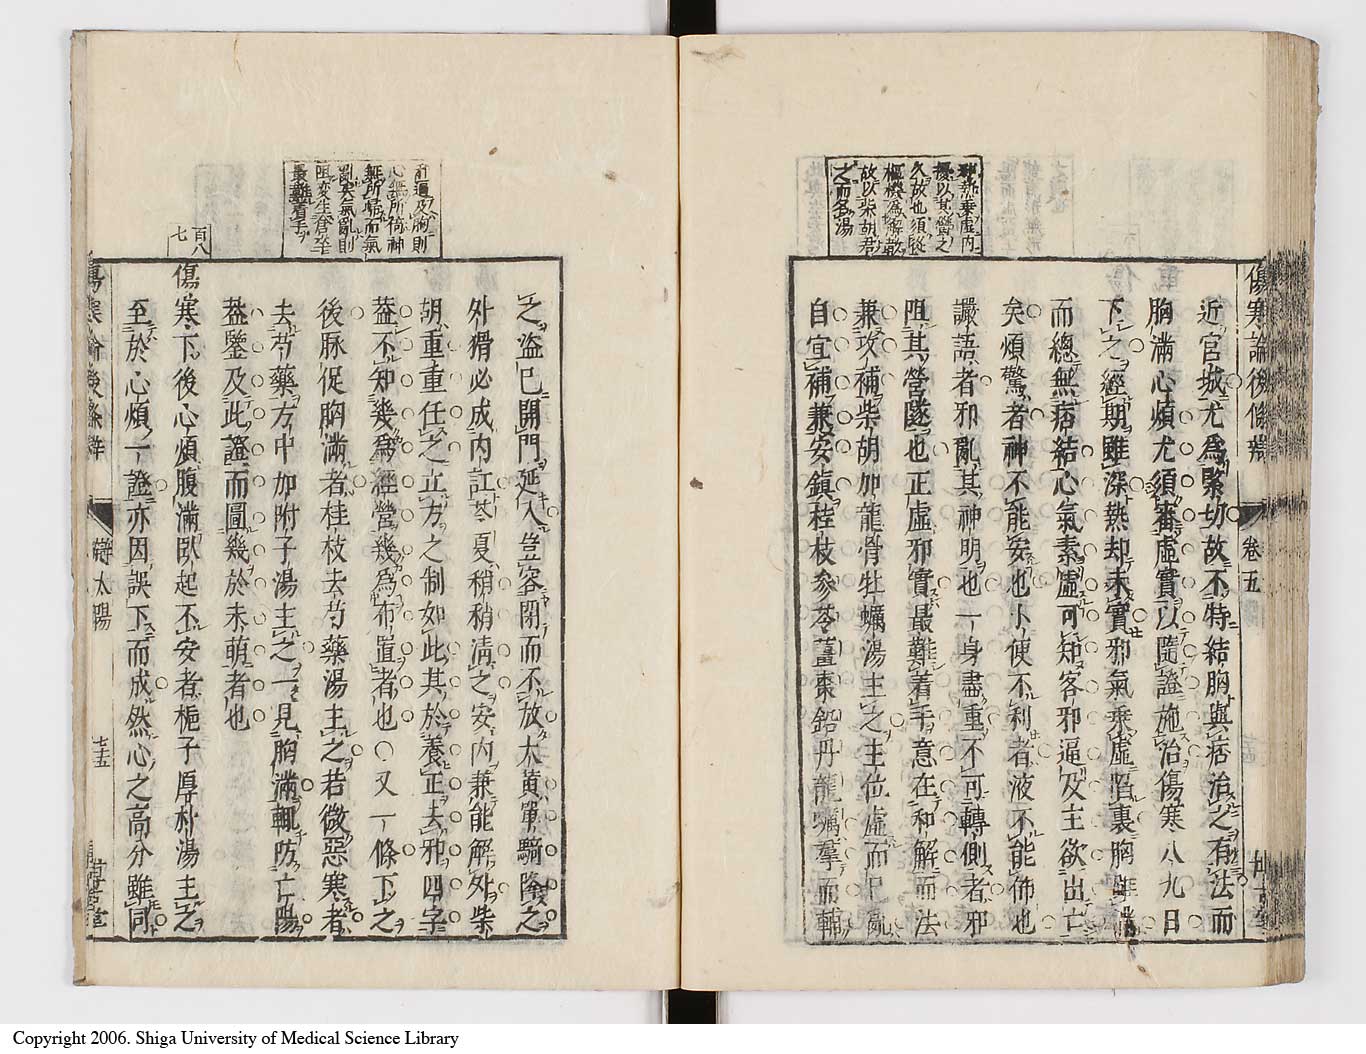 傷寒論後條辨
卷五
邪熱乗虚內
擾以其鬱之
久故也須歐
樞機爲解散
故以柴胡君
之而名湯
近宮城尤爲緊切故不特結胸與痞治之有法而
胸滿心煩尤須審虛實以隨證施治傷寒八九日
下之經期雖深熱却未實邪氣乗虛陷裏胸雖滿
而總無痞結心氣素虛可知客邪逼及主欲出亡
矣煩驚者神不能安也小便不利者液不能佈也
讝語者邪亂其神明也一身盡重不可轉側者邪
阻其營隧也正虛邪實最難着手意在和解而法
兼攻補柴胡加龍骨牡蠣湯主之主位虛而已亂
自宜補兼安鎮桂枝參苓薑棗鉛丹龍蠣羣而輔
逼及胸則
心無所倚神
無所歸而氣
亂矣氣亂則
阻変生倉卒
最難着手
百八
七
之盜已開門延入豈容閉而不放大黃單騎除之
外猾必成內訌苓夏稍稍清之安內兼能解外柴
胡重重任之立方之制如此其於養正去邪四字
葢不知幾爲經營幾爲布置者也○又一條下之
後脉促胸滿者桂枝去芍藥湯主之若微惡寒者
去芍藥方中加附子湯主之一見胸滿輒防亡陽
葢鑒及此證而圖幾於未萌者也
傷寒下後心煩腹滿臥起不安者梔子厚朴湯主之
至於心煩一證亦因誤下而成然心之高分雖同
傷寒論後條辨
辨太陽
七五